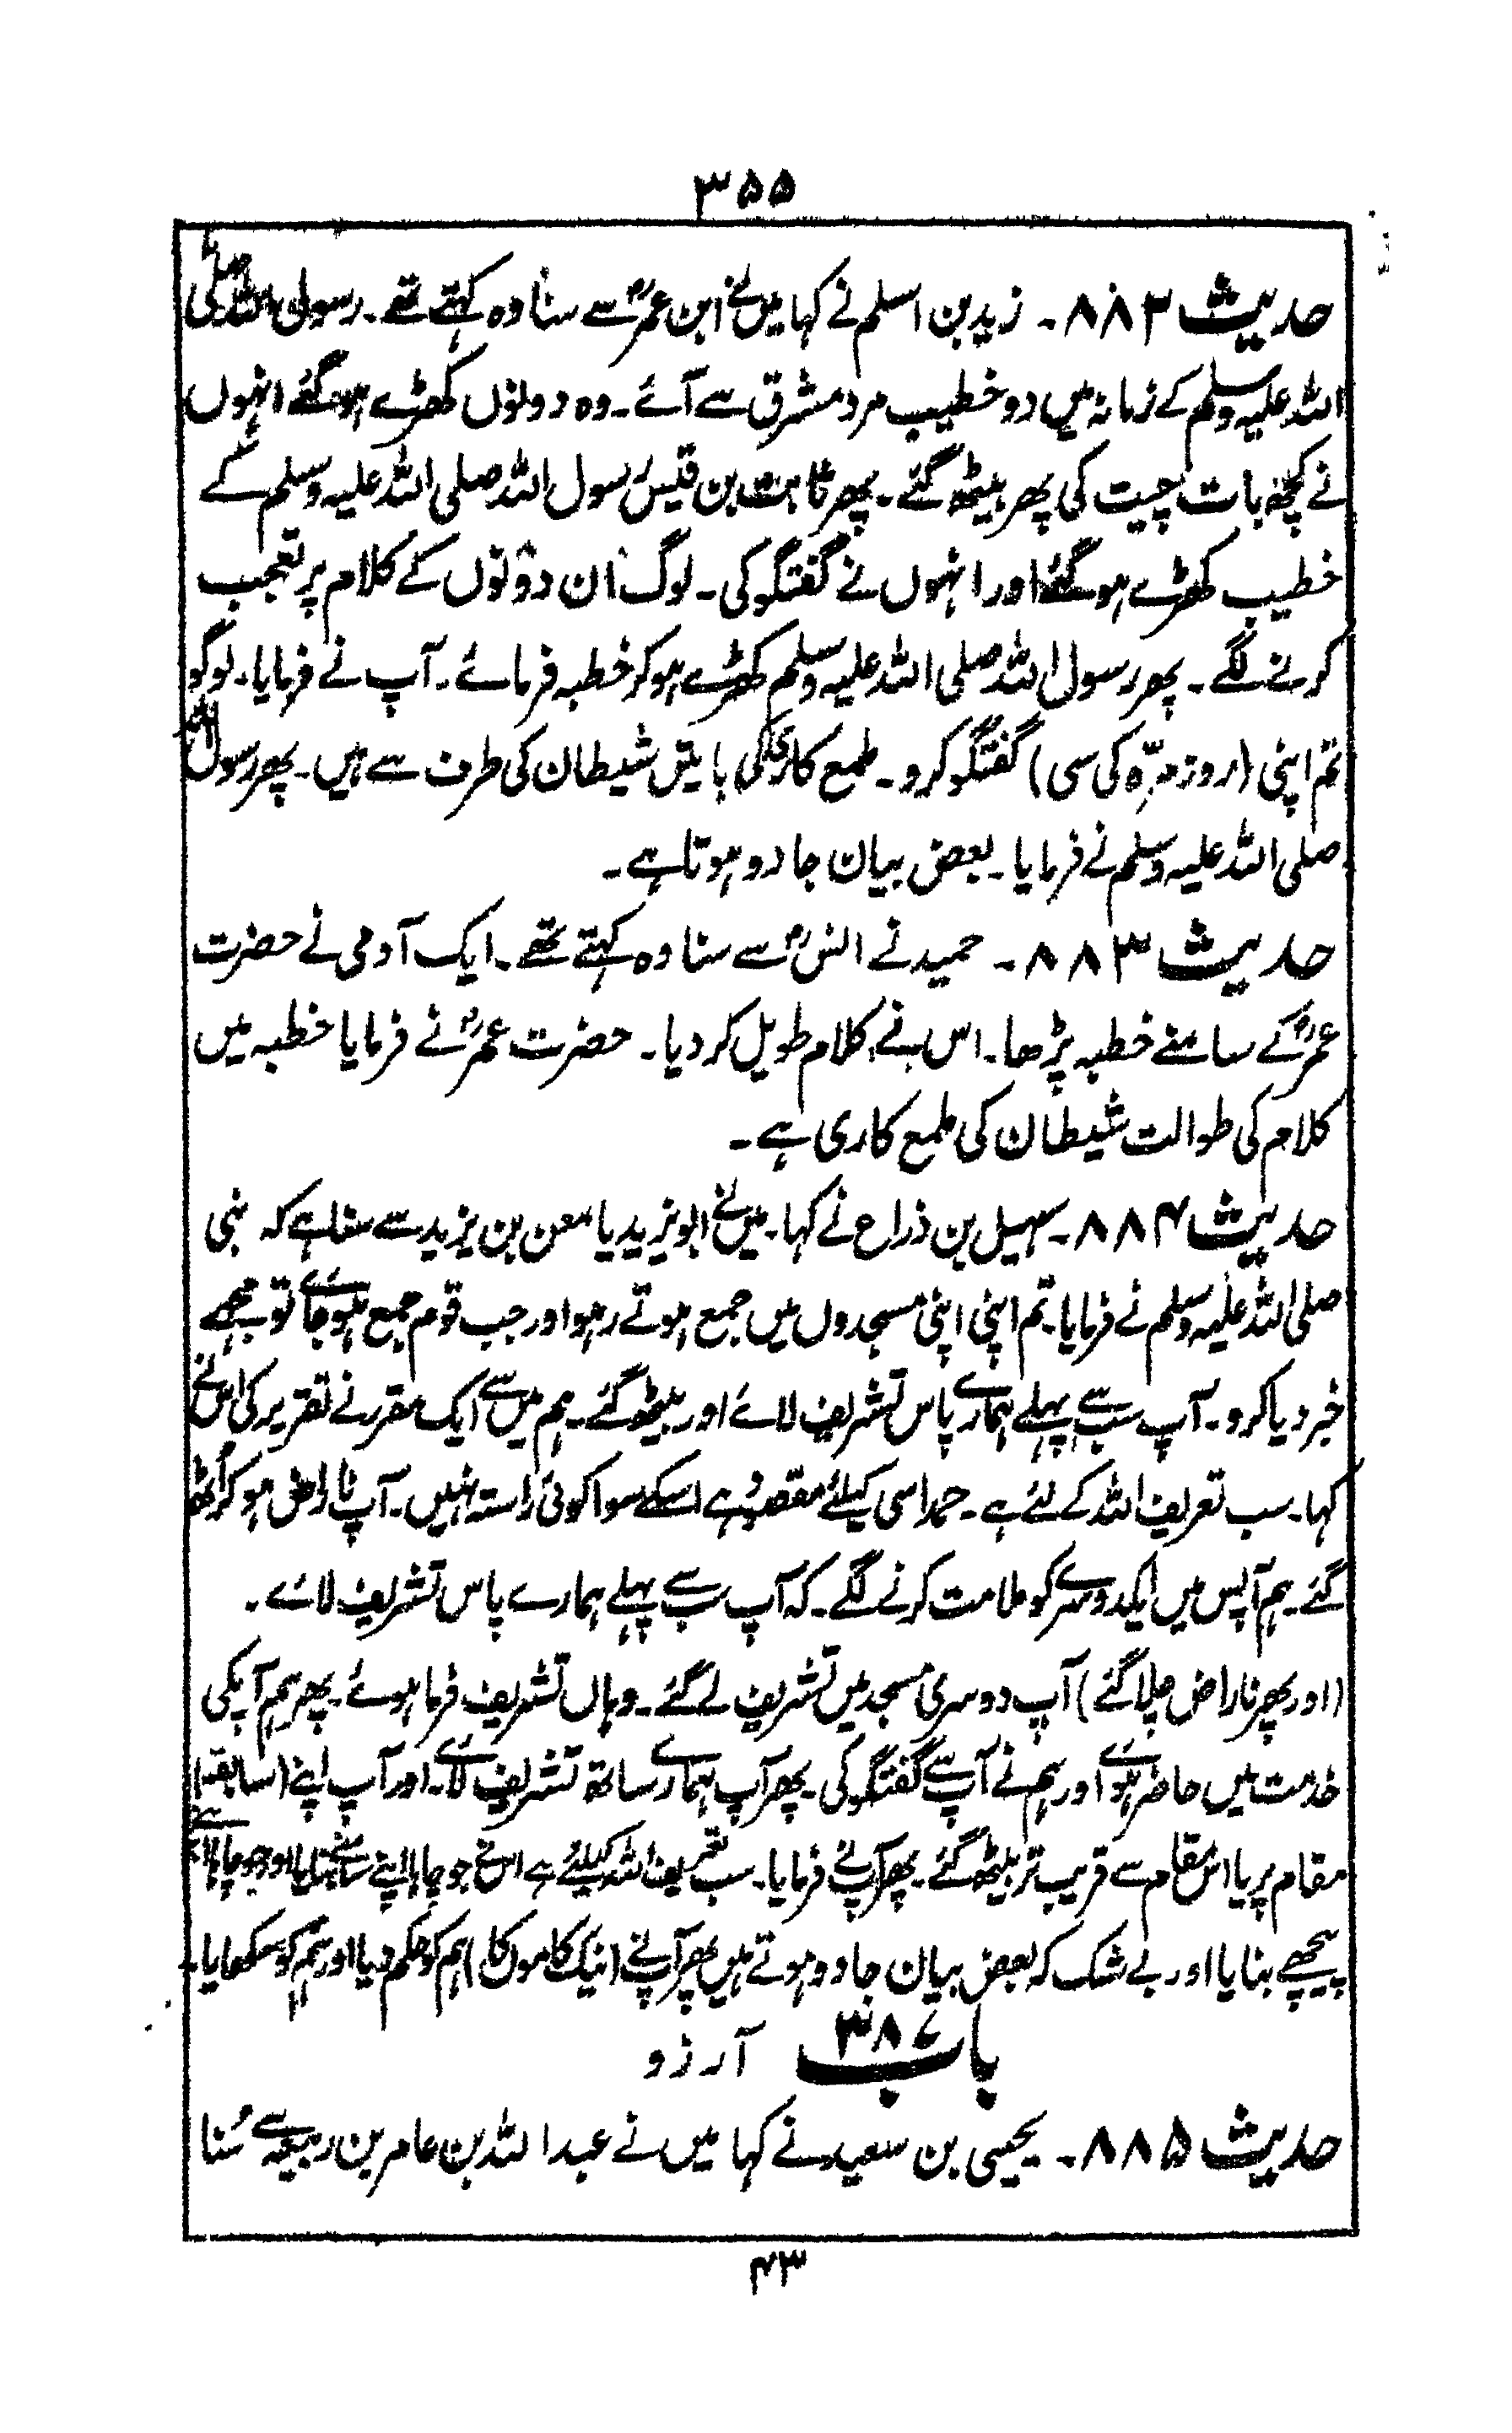 ۳۵۵
حدیث ۸۸۲۔ زید بن اسلم نے کہا میں نے ابن عمرؓ سے سنا وہ کہتے تھے۔ رسول اللہ صلی
اللہ علیہ وسلم کے زمانہ میں دو خطیب مرد مشرق سے آئے۔ وہ دونوں کھڑے ہو گئے انہوں
نے کچھ بات چیت کی پھر بیٹھ گئے۔ پھر ثابت بن قیسؓ رسول اللہ صلی اللہ علیہ وسلم کے
خطیب کھڑے ہو گئے اور انہوں نے گفتگو کی۔ لوگ ان دونوں کے کلام پر تعجب
کرنے لگے۔ پھر رسول اللہ صلی اللہ علیہ وسلم کھڑے ہو کر خطبہ فرمائے۔ آپ نے فرمایا۔ لوگو
تم اپنی (روز مرّہ کی سی) گفتگو کرو۔ ملمع کاری کی باتیں شیطان کی طرف سے ہیں۔ پھر رسول اللہ
صلی اللہ علیہ وسلم نے فرمایا۔ بعض بیان جادو ہوتا ہے۔
حدیث ۸۸۳۔ حمید نے انسؓ سے سنا وہ کہتے تھے۔ ایک آدمی نے حضرت
عمرؓ کے سامنے خطبہ پڑھا۔ اس نے کلام طویل کر دیا۔ حضرت عمرؓ نے فرمایا خطبہ میں
کلام کی طوالت شیطان کی ملمع کاری ہے۔
حدیث ۸۸۴۔ سہیل بن ذراع نے کہا۔ میں نے ابو یزید یا معن بن یزید سے سنا ہے کہ نبی
صلی اللہ علیہ وسلم نے فرمایا۔ تم اپنی اپنی مسجدوں میں جمع ہوتے رہو اور جب قوم جمع ہو جائے تو مجھے
خبر دیا کرو۔ آپ سب سے پہلے ہمارے پاس تشریف لائے اور بیٹھ گئے۔ ہم میں سے ایک مقرر نے تقریر کی اس نے
کہا۔ سب تعریف اللہ کے لئے ہے۔ حمد اسی کیلئے مقصود ہے اسکے سوا کوئی راستہ نہیں۔ آپ ناراض ہو کر اُٹھ
گئے۔ ہم آپس میں ایکدوسرے کو ملامت کرنے لگے۔ کہ آپ سب سے پہلے ہمارے پاس تشریف لائے۔
(اور پھر ناراض چلا گئے) آپ دوسری مسجد میں تشریف لے گئے۔ وہاں تشریف فرما ہوئے۔ پھر ہم آپکی
خدمت میں حاضر ہوئے اور ہم نے آپ سے گفتگو کی۔ پھر آپ ہمارے ساتھ تشریف لائے۔ اور آپ اپنے (سابقہ)
مقام پر یا اس مقام سے قریب تر بیٹھ گئے۔ پھر آپ نے فرمایا۔ سب تعریف اللہ کیلئے ہے اس نے جو چاہا اپنے سامنے بنایا اور جو چاہا
پیچھے بنایا اور بے شک کہ بعض بیان جادو ہوتے ہیں پھر آپ نے (نیک کاموں کا) ہم کو حکم دیا اور ہم کو سکھایا۔
باب ۳۸۷ آرزو
حدیث ۸۸۵۔ یحییٰ بن سعید نے کہا میں نے عبداللہ بن عامر بن ربیعہ سے سُنا
۴۳